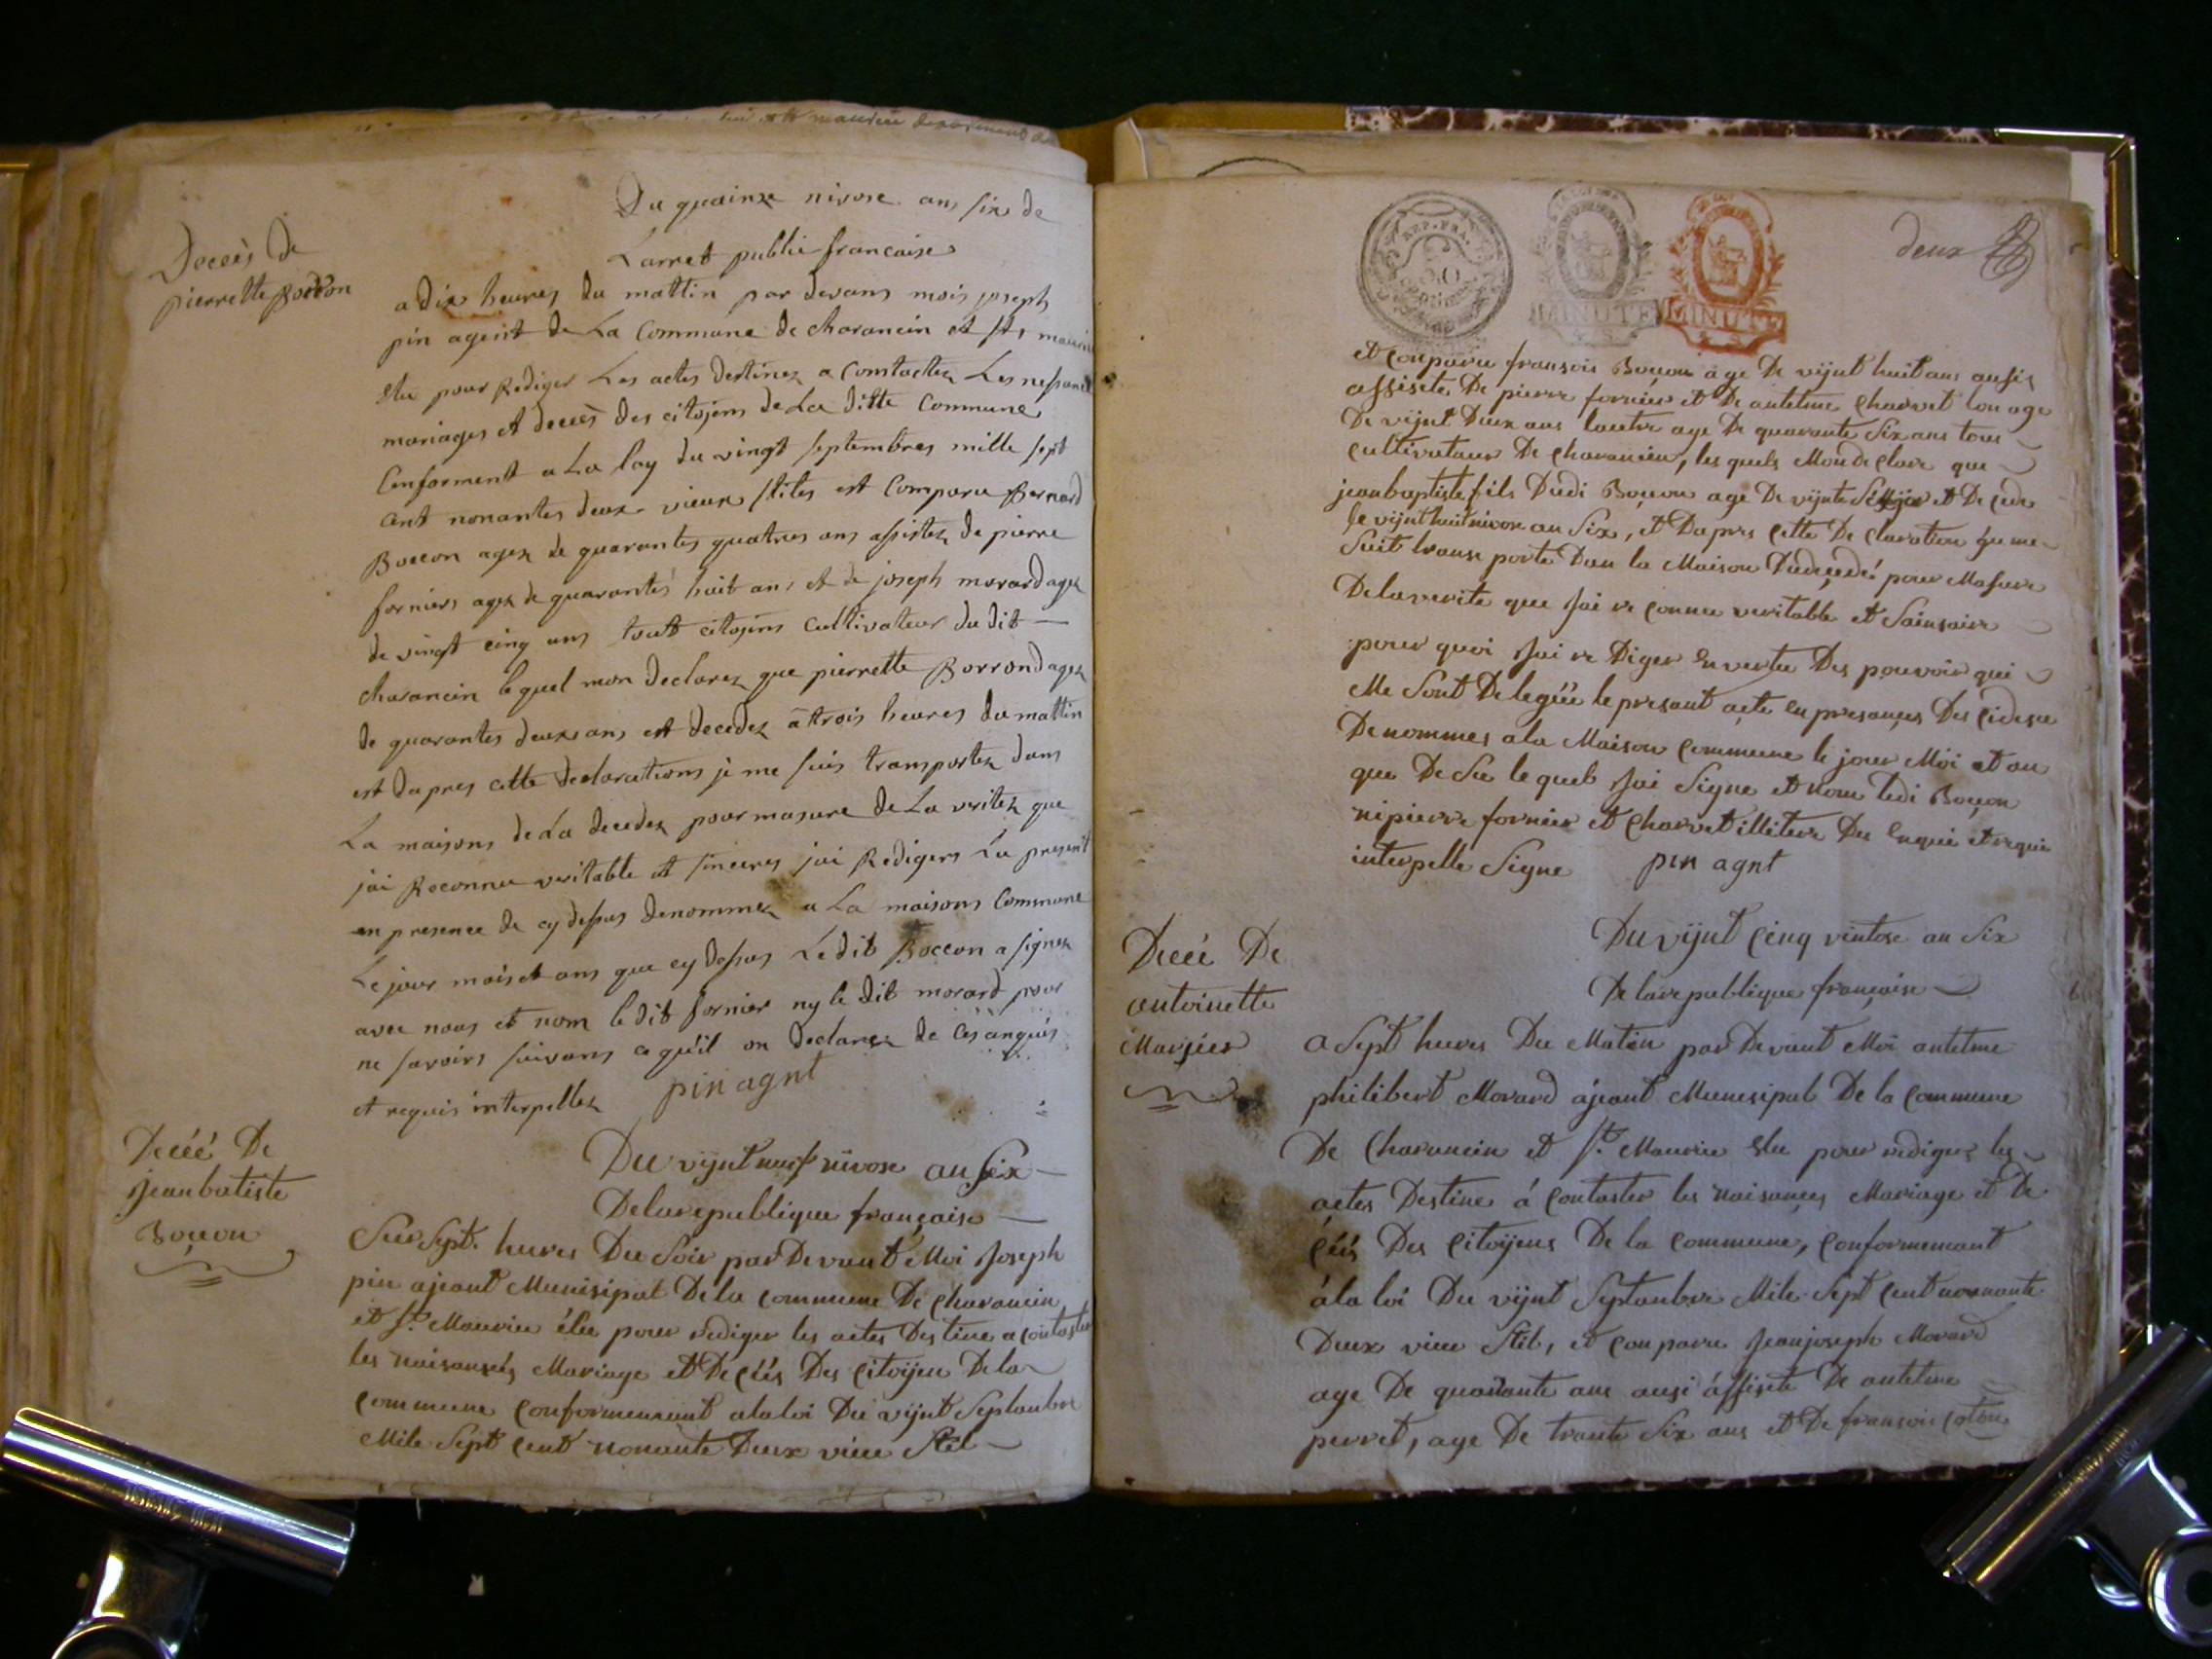 Du quainze nivose ans six de
Larret public francaise
Deceès de
pierrette Boccon
a dix heures du mattin par devans mois joseph
pin agent de La Commune de charancin et st
élu pour Rediger Les actes destinez a Comtactez Les
mariages et deceès des citojens de La ditte Commune
Conforment a La loy du vingt septembres mille sept
cent nonantes deux vieux stiles est Comparu Bernard
Boccon agez de quarantes quatres ans assistez de pierre
forniers agez de quarantes huit ans et de joseph morard agez
de vingt cinq ans tout citojens cultivateur du dit
charancin lequel mon declarez que pierrette Borrond agez
de quarantes deux ans est decedez a trois heures du mattin
est dapres cette declarations je me suis transportez dans
La maisons de La decedez pour masure de La veritez que
jai Reconnu veritable et sinceres jai Redigers La present
en presence de cy dessus denommez a La maisons Commune
Le jour mois et ans que cy dessus Le dit Boccon a signez
avec nous et nom le dit fornier ny le dit morard pour
ne savoirs suivans ce qu'il on declarez de ces anquis
et requis interpellez pin agnt
Deceé De
jean batiste
Boçcon
Du vijnt neuf nivose an six
De la republique française
Sur Sept heures Du Soir par Devant Moi Joseph
pin ajeant Munisipal De la commune De charancin
et St Maurice élu pour rediger les actes Destine a contaster
les naisansés Mariage et Decéés Des citoijen De la
commune conformemant a la loi Du vijnt Septanbre
Mile Sept cent nonante Deux vieu Stil
REP. FRA.
50
MINUTE
MINUTE
deux
et conparu fransois Boucon age De vijnt huit ans ausis
assisete De pierre fornier et De antelme charvet lon age
De vijnt Deux ans lautre age De quarante Six ans tous
cultivataur De charancin, les quels Mon de clare que
jean baptiste fils Dudi Boucon age De vijnte et De cede
le vijnt huit nivose an Six, et Dapres cette De claration je me
Suit transe porte Dan la Maison Dudecedé pour Masure
De la verite que Jai re connu veritable et Sainsaire
pour quoi Jai re Diger en vertu Des pouvoir qui
Me Sont Deleguee le presant acte en presances Des cidesu
Denommes a la Maison commune le jour Moi et an
que De Su le quel Jai Signe et nom ledi Boucon
ni pierre fornier et charvet illitere De enquit et requi
interpelle Signe pin agnt
Deceé De
antoinette
Marjier
Du vijnt cinq vintose an Six
De la republique française
a Sept heures Du Matin par Devant Moi antelme
philibert Morard ajeant Munisipal De la commune
De Charancin et St. Maurice élu pour rediger les
actes Destine á contaster les naisances Mariage et De
céés Des citoijens De la commune, conformemant
á la loi Du vijnt Septanbre Mile Sept cent nonante
Deux vieu Stil, et conparu Jean joseph Morard
age De quarante ans ausi ássisete De antelme
perret, age De trante Six ans et De fransois